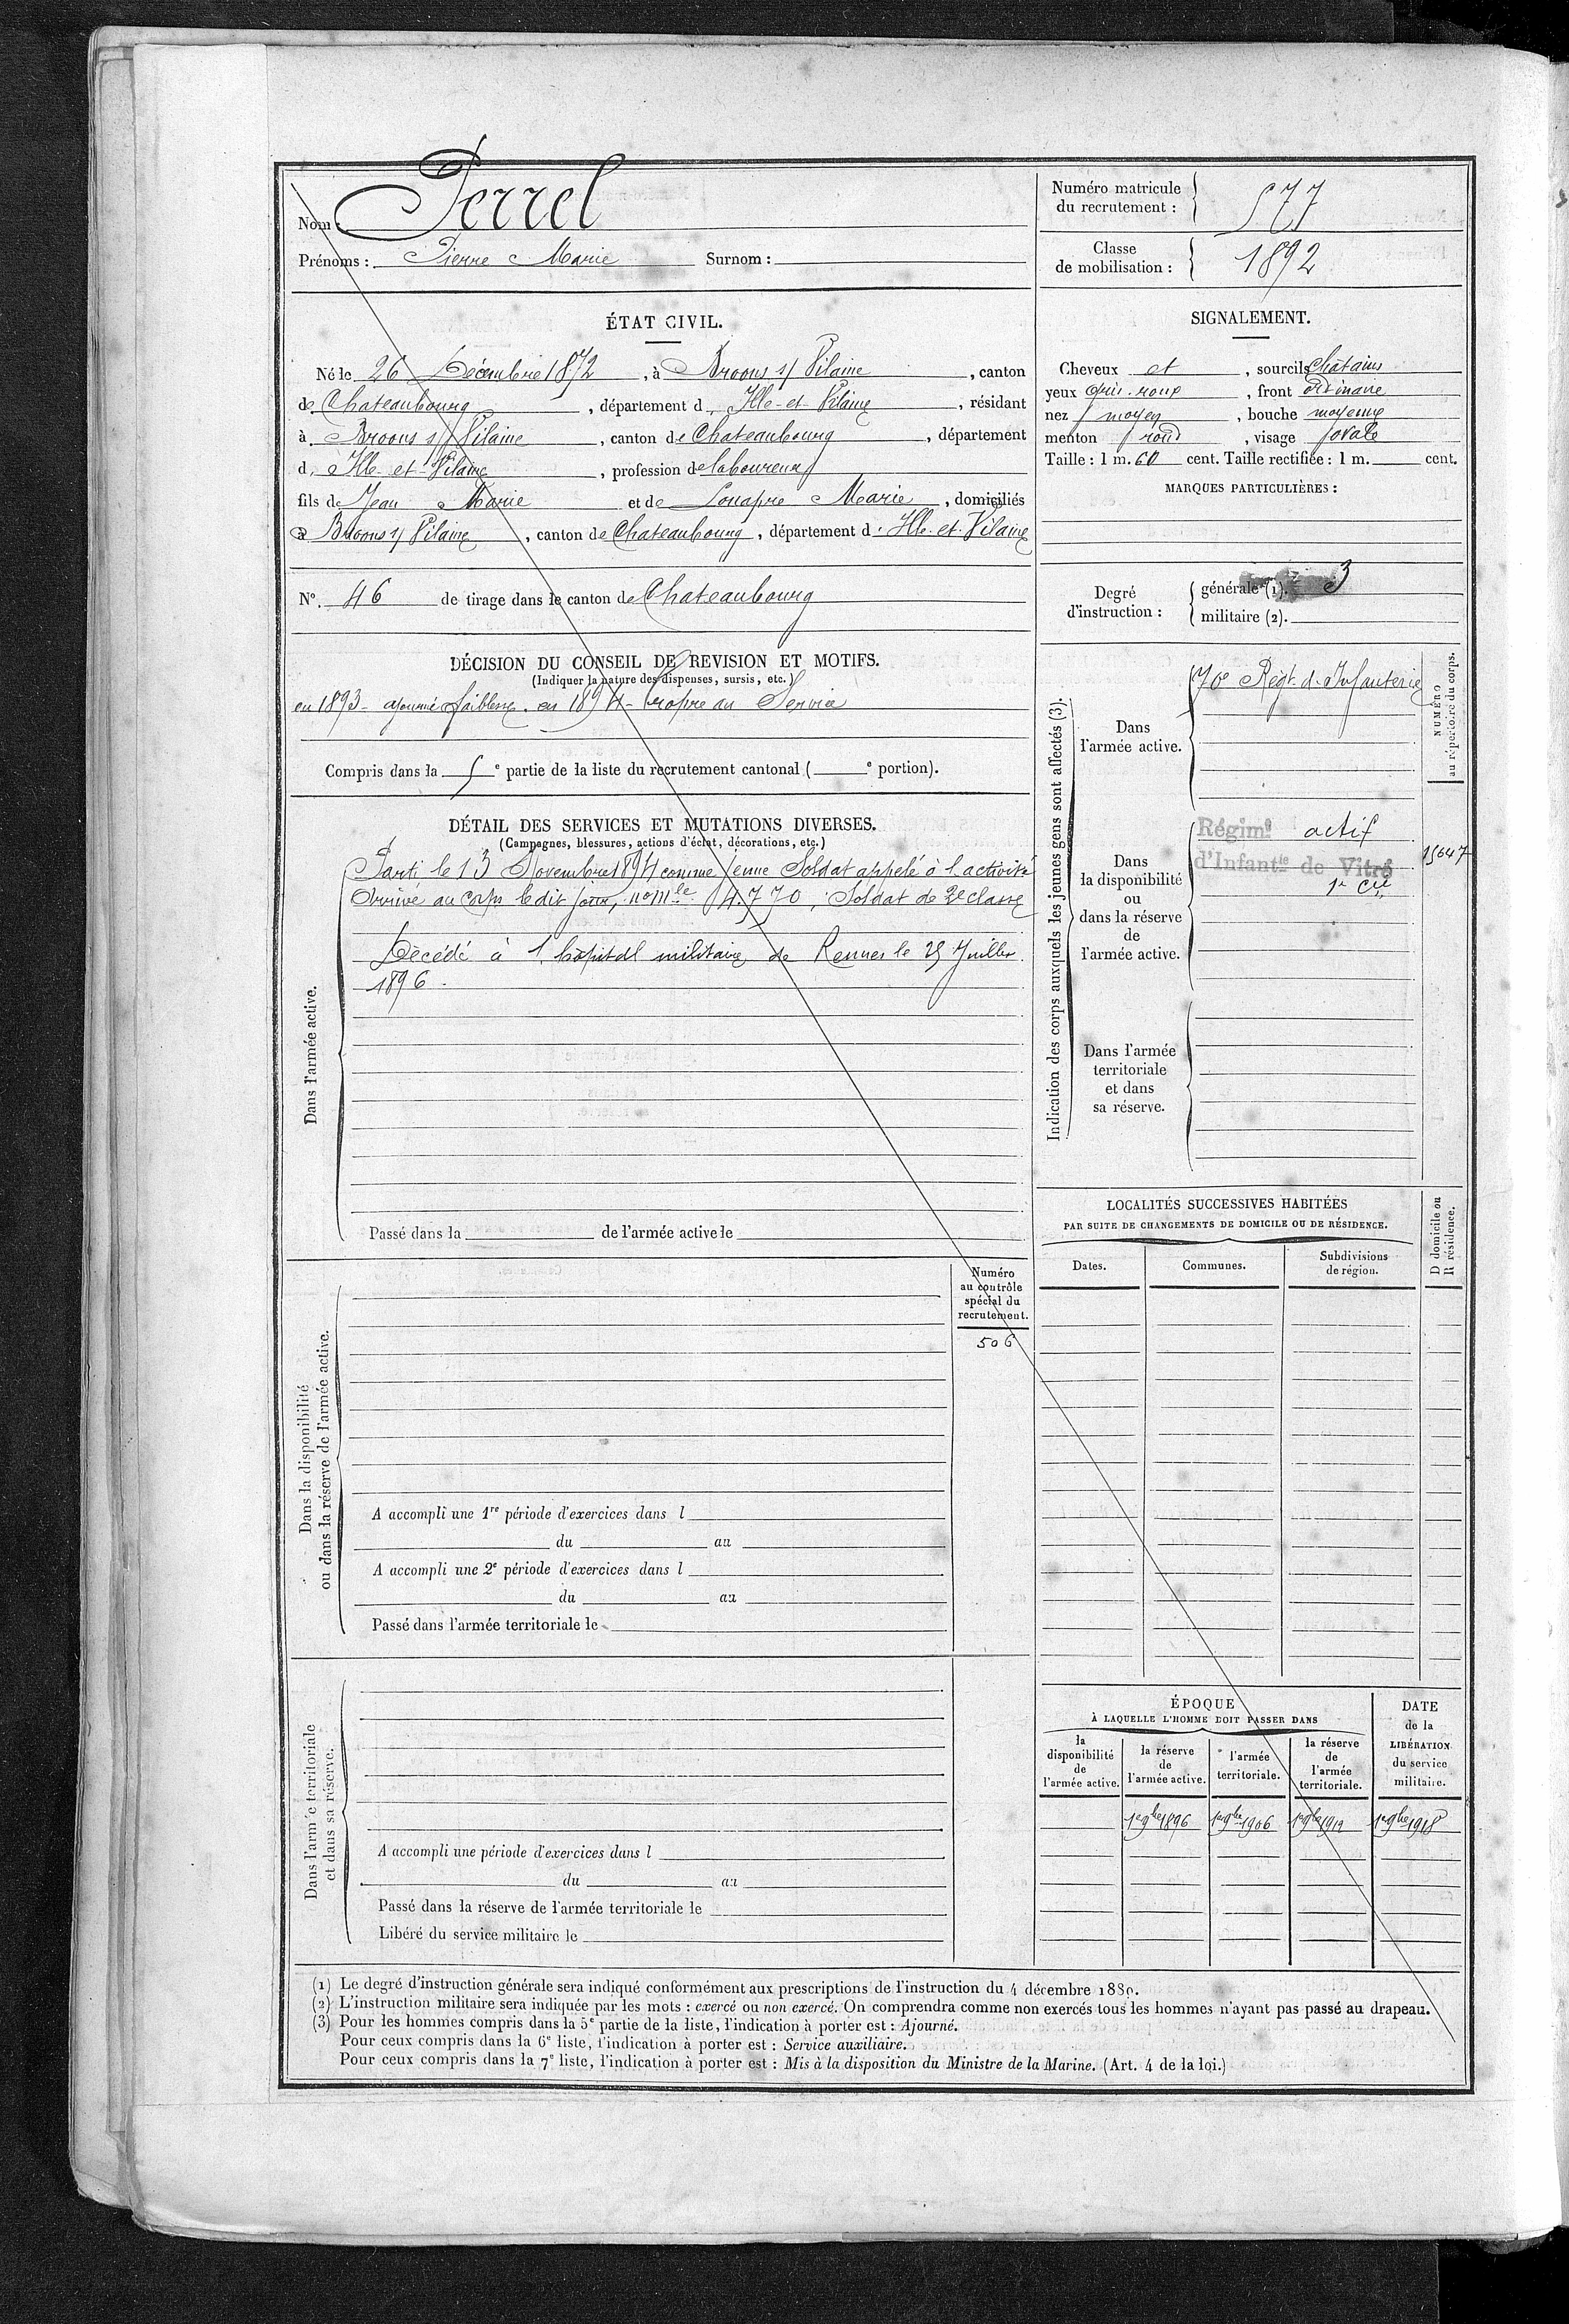 Nom : Perrel
Prénoms : Pierre Marie Surnom :
ÉTAT CIVIL.
Né le 26 Décembre 1872, à Broons s/ Vilaine, canton
de Chateaubourg, département d. Ille-et-Vilaine, résidant
à Broons s/ Vilaine, canton de Chateaubourg, département
d. Ille-et-Vilaine, profession de laboureur
fils de Jean Marie et de Marie, domiciliés
à Broons s/ Vilaine, canton de Chateaubourg, département d. Ille-et-Vilaine
N°. 46 de tirage dans le canton de Chateaubourg
DÉCISION DU CONSEIL DE REVISION ET MOTIFS.
(Indiquer la nature des dispenses, sursis, etc.)
en 1893 - ajourné faiblesse. en 1894 - propre au Service
Compris dans la 5e partie de la liste du recrutement cantonal ( e portion).
DÉTAIL DES SERVICES ET MUTATIONS DIVERSES.
(Campagnes, blessures, actions d'éclat, décorations, etc.)
Dans l'armée active.
Parti le 13 Novembre 1894 comme jeune Soldat appelé à l'activité
Arrivé au corps le dit jour, no mle 4.770, Soldat de 2e classe
Décédé à l'hôpital militaire de Rennes le 25 Juillet
1896.
Passé dans la de l'armée active le
Dans la disponibilité
ou dans la réserve de l'armée active.
Numéro
au contrôle
spécial du
recrutement.
506
A accompli une 1re période d'exercices dans l
du au
A accompli une 2e période d'exercices dans l
du au
Passé dans l'armée territoriale le
Dans l'armée territoriale
et dans sa réserve.
A accompli une période d'exercices dans l
du au
Passé dans la réserve de l'armée territoriale le
Libéré du service militaire le
Numéro matricule
du recrutement : 577
Classe
de mobilisation : 1892
SIGNALEMENT.
Cheveux et, sourcils châtains
yeux gris-roux, front ordinaire
nez moyen, bouche moyenne
menton rond, visage ovale
Taille : 1 m. 60 cent. Taille rectifiée : 1 m. cent.
MARQUES PARTICULIÈRES :
Degré
d'instruction :
générale (1). 3
militaire (2).
Indication des corps auxquels les jeunes gens sont affectés (3).
NUMÉRO
au répertoire du corps.
Dans
l'armée active.
70e Régt d'Infanterie
Dans
la disponibilité
ou
dans la réserve
de
l'armée active.
Régimt actif
d'Infantie de Vitré
1e Cie
15647
Dans l'armée
territoriale
et dans
sa réserve.
LOCALITÉS SUCCESSIVES HABITÉES
PAR SUITE DE CHANGEMENTS DE DOMICILE OU DE RÉSIDENCE.
Dates.
Communes.
Subdivisions
de région.
D domicile ou
R résidence.
ÉPOQUE
À LAQUELLE L'HOMME DOIT PASSER DANS
la
disponibilité
de
l'armée active.
la réserve
de
l'armée active.
l'armée
territoriale.
la réserve
de
l'armée
territoriale.
DATE
de la
LIBÉRATION
du service
militaire.
1er 9bre 1896 1er 9bre 1906 1er 9bre 1912 1er 9bre 1918
(1) Le degré d'instruction générale sera indiqué conformément aux prescriptions de l'instruction du 4 décembre 1889.
(2) L'instruction militaire sera indiquée par les mots : exercé ou non exercé. On comprendra comme non exercés tous les hommes n'ayant pas passé au drapeau.
(3) Pour les hommes compris dans la 5e partie de la liste, l'indication à porter est : Ajourné.
Pour ceux compris dans la 6e liste, l'indication à porter est : Service auxiliaire.
Pour ceux compris dans la 7e liste, l'indication à porter est : Mis à la disposition du Ministre de la Marine. (Art. 4 de la loi.)